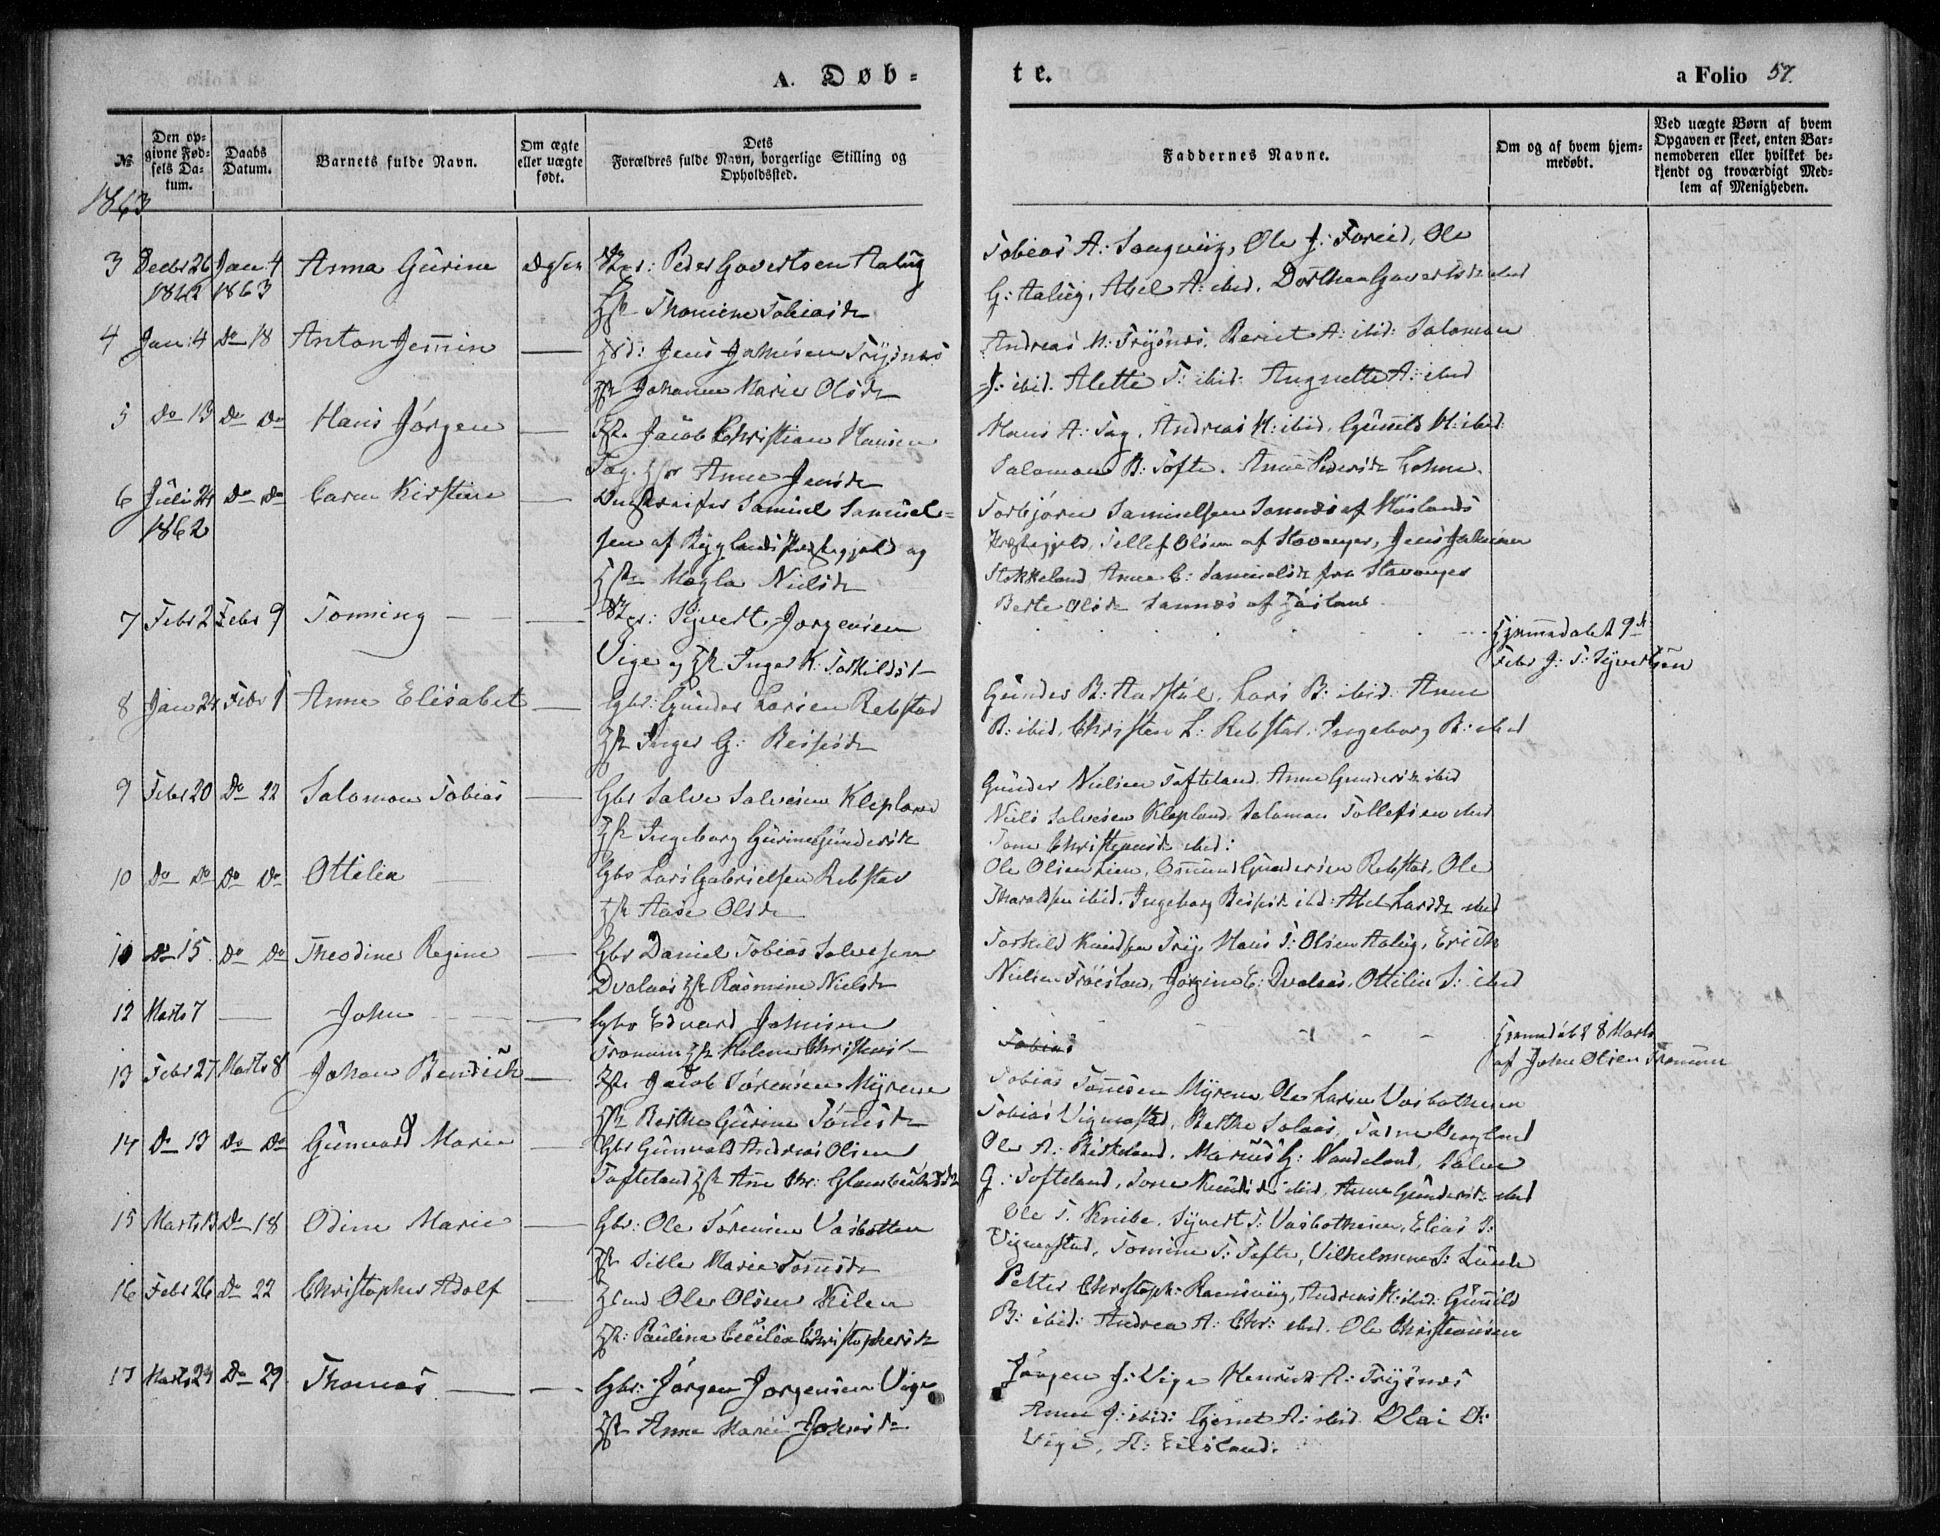 A. Døb=
te.
a Folio 57.
№
Den opgivne Fødsels Datum.
Daabs Datum.
Barnets fulde Navn.
Om ægte eller uægte født.
Dets Forældres fulde Navn, borgerlige Stilling og Opholdssted.
Faddernes Navne.
Om og af hvem hjemmedøbt.
Ved uægte Børn af hvem Opgaven er skeet, enten Barnemoderen eller hvilket bekjendt og troværdigt Medlem af Menigheden.
1863
3 Decbr 26 1862 Jan: 4 1863 Anna Gurine Peder Govertsen Aalug
Thomine Tobiasdr
Tobias A: Sangvig, Ole J: Foreid, Ole
G: Aalug, Abel A: ibid, Dorthea Govertsdr ibid
4 Jan: 4 Do 18 Anton Jensin Jens Jahnsen Trysnæs
Johanne Marie Olsdr
Andreas M: Trysnes, Beret A: ibid: Salomon
J: ibid. Alette T: ibid: Augnette A: ibid
5 Do 13 Do Do Hans Jörgen Jacob Christian Hansen
Tag. Anne Jensdr
Hans A: Tag, Andreas H: ibid. Gunild H: ibid:
Salomon B: Tofte. Anne Pedersdr Lohne.
6 Juli 24 1862 Do Do Caren Kirstine Samuel Samuel=
sen af Præstegjeld og
Nielsdr
Torbjørn Samuelsen Sannæs af
Præstegjeld, Tellef Olsen af Stavanger, Jens Jahnsen
Stokkeland Anne C: Samuelsdr fra Stavanger
Berte Olsdr Sannæs af
7 Febr 2 Febr 9 Tonning Sijvert Jorgensen
Vige og Inger K: Torkildsdr
Hjemmedøbt 9de
Febr J: T: Syvertsen
8 Jan 24 Febr 1 Anne Elisabet Gbr: Gunder Larsen Rebstad
Inger G: Reiersdr
Gunder B: Aarstul, Lars B: ibid: Anne
B: ibid, Christen L: Rebstad, Ingeborg B: ibid
9 Febr 20 Do 22 Salomon Tobias Gbr Salve Salvesen Klepland
Ingeborg Gurine Gundersdr
Gunder Nielsen Tofteland. Anne Gundersdr ibid
Niels Salvesen Klepland Salomon Tollefsen ibid
Tone Christensdr ibid:
10 Do Do Do Do Ottilea Gbr Lars Gabrielsen Rebstad
Aase Olsdr
Ole Olsen Lien, Omund Gundersen Rebstad, Ole
Haraldsen ibid, Ingeborg ibid: Abel Larsdr ibid
11 Do 15 Do Do Theodine Regine Gbr Daniel Tobias Salvesen
Dvalaas Rasmine Nielsdr
Torkild Knudsen Try, Hans T: Olsen Aalug, Erich
Nielsen Frøisland, Jørgine E: Dvalaas, Ottilia S: ibid
12 Marts 7 John Gbr Edvard Jahnsen
Tronum Helene Christensdr
Tobias
Hjemmedøbt 8 Marts
af John Olsen Tronum
13 Febr 27 Marts 8 Johan Bendich Jacob Sörensen Myrene
Berthe Gurine Tönnesdr
Tobias Tönnesen Myrene, Ole Larsen Vasbothnen
Tobias Vigmostad, Berthe Solaas,
14 Do 13 Do Do Gunvald Marie Gbr Gunvald Andreas Olsen
Tofteland Ane Chr:
Ole A: Birkeland. Marius G: Nodeland, Salve
G: Tofteland, Tone Knudsdr ibid, Anne Gundersdr ibid
15 Marts 13 Do 18 Odine Marie Gbr: Ole Sörensen Vasbotten
Sille Marie Tönnesdr
Ole T. Knibe. Syvert T: Vasbothnen, Elias P:
Vigmostad, Tomine T: Tofte, Vilhelmine S: Lunde
16 Febr 26 Do 22 Christopher Adolf Ole Olsen Kilen
Pauline Cecilia Christophersdr
Petter Christoph: Ramsvig, Andreas K: ibid: Gunild
B: ibid: Andrea A: Chr: ibid. Ole Christensen
17 Marts 24 Do 29 Thomas Gbr: Jörgen Jorgensen Vige
Anne Marie Johnsdr
Jörgen J: Vige Henrich A: Trysnæs
Anne J: ibid: A: ibid Olai O:
Vige, A: Eiesland: